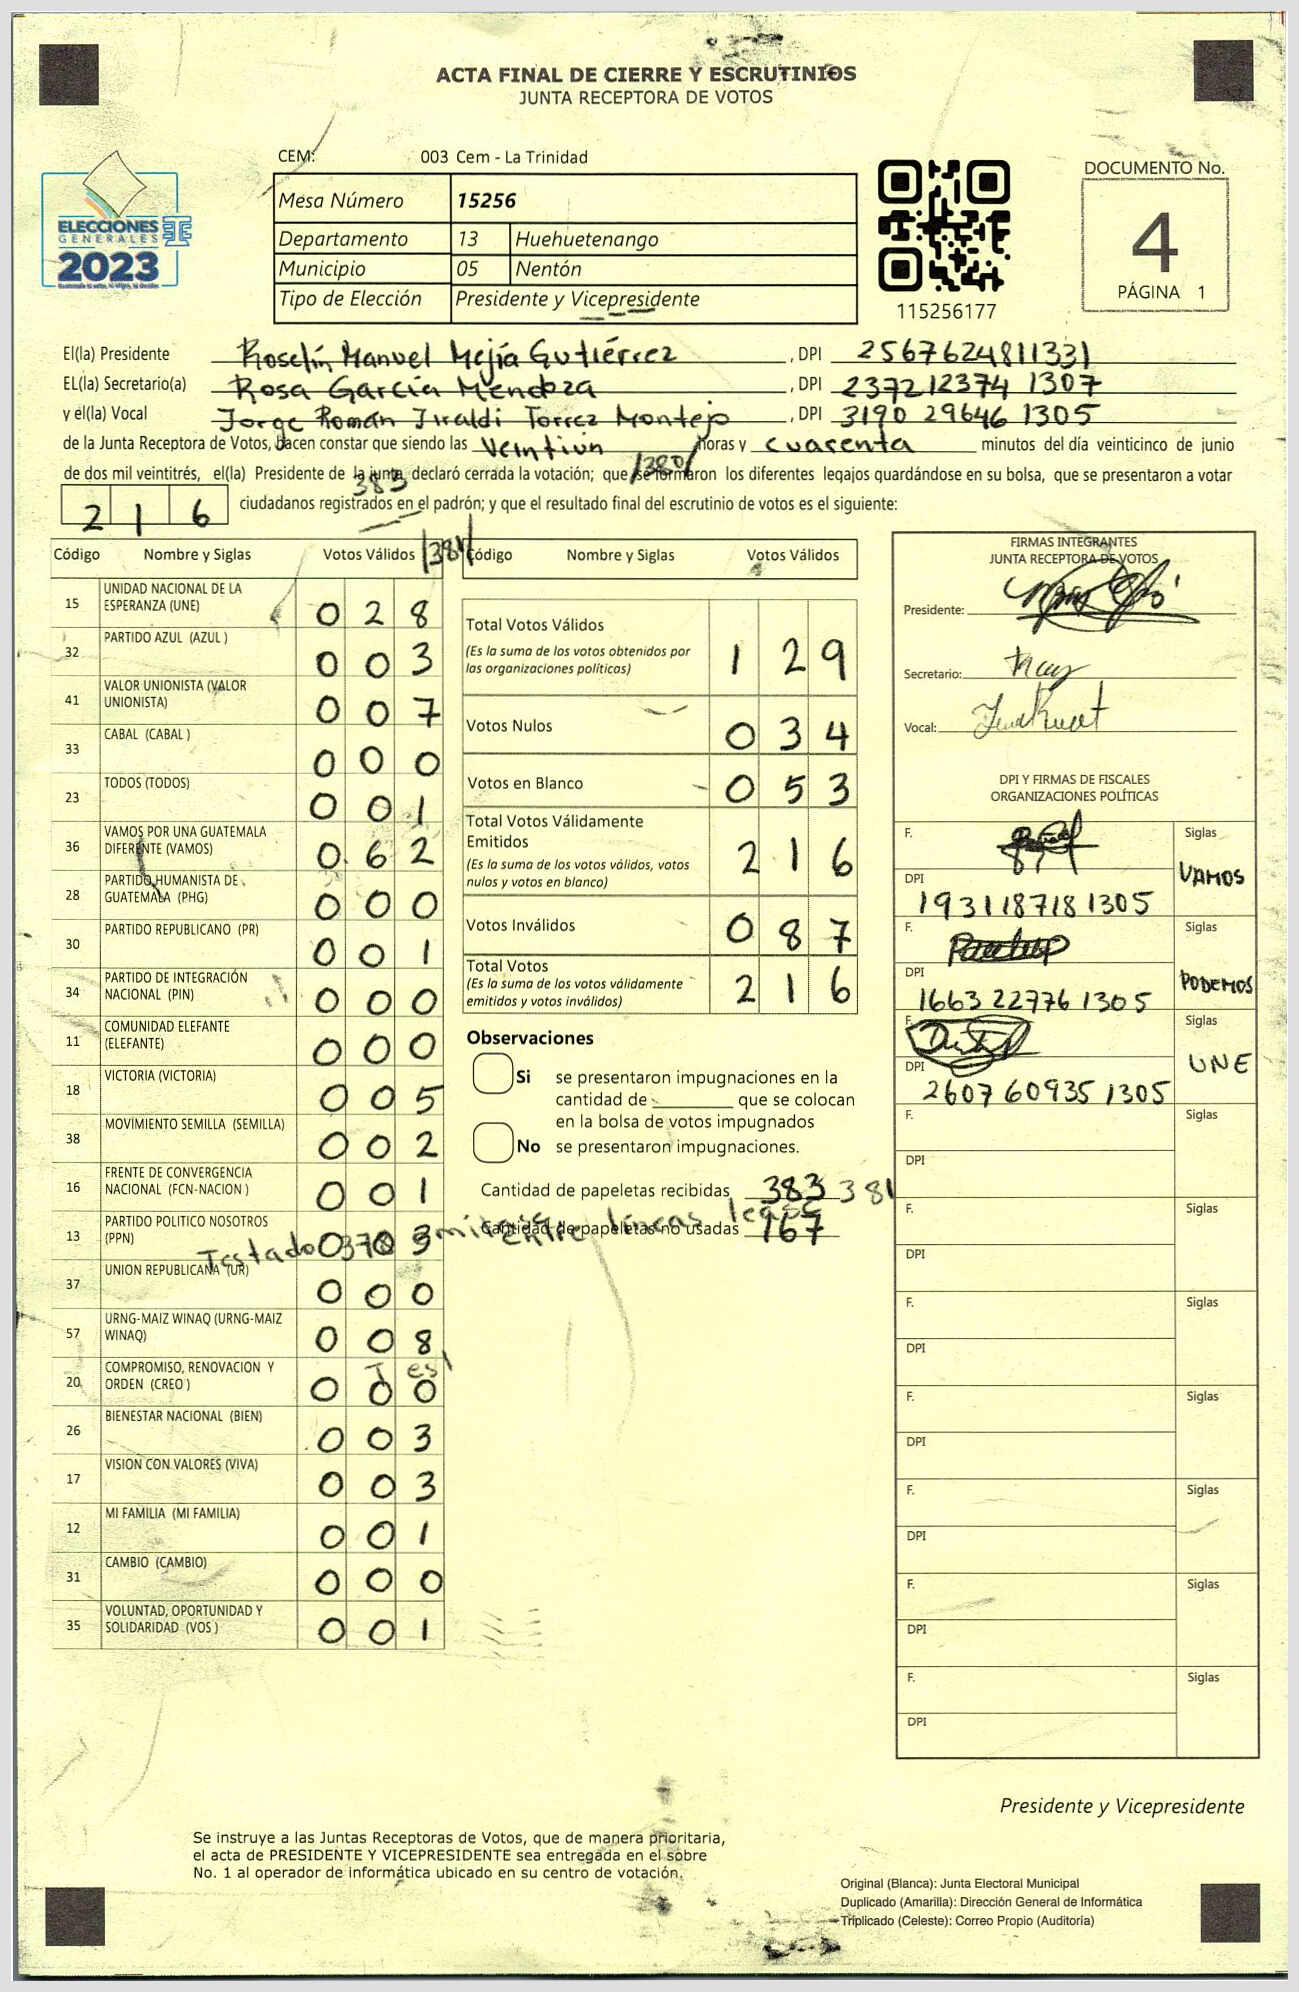 ACTA FINAL DE CIERRE Y ESCRUTINIOS
JUNTA RECEPTORA DE VOTOS
CEM: 003 Cem - La Trinidad
ELECCIONES
GENERALES
2023
Mesa Número 15256
Departamento 13 Huehuetenango
Municipio 05 Nentón
Tipo de Elección Presidente y Vicepresidente
115256177
DOCUMENTO No.
4
PÁGINA 1
El(la) Presidente Roselín Manuel Mejía Gutiérrez , DPI 2567624811331
EL(la) Secretario(a) Rosa García Mendoza , DPI 237212374 1307
y el(la) Vocal Jorge Román Jiraldi Torrez Montejo , DPI 3190 29646 1305
de la Junta Receptora de Votos, hacen constar que siendo las Veintiún horas y cuarenta minutos del día veinticinco de junio
/380/
de dos mil veintitrés, el(la) Presidente de la junta declaró cerrada la votación; que se formaron los diferentes legajos guardándose en su bolsa, que se presentaron a votar
383
216 ciudadanos registrados en el padrón; y que el resultado final del escrutinio de votos es el siguiente:
/381/
Código Nombre y Siglas Votos Válidos
15 UNIDAD NACIONAL DE LA ESPERANZA (UNE) 0 2 8
32 PARTIDO AZUL (AZUL ) 0 0 3
41 VALOR UNIONISTA (VALOR UNIONISTA) 0 0 7
33 CABAL (CABAL ) 0 0 0
23 TODOS (TODOS) 0 0 1
36 VAMOS POR UNA GUATEMALA DIFERENTE (VAMOS) 0 6 2
28 PARTIDO HUMANISTA DE GUATEMALA (PHG) 0 0 0
30 PARTIDO REPUBLICANO (PR) 0 0 1
34 PARTIDO DE INTEGRACIÓN NACIONAL (PIN) 0 0 0
11 COMUNIDAD ELEFANTE (ELEFANTE) 0 0 0
18 VICTORIA (VICTORIA) 0 0 5
38 MOVIMIENTO SEMILLA (SEMILLA) 0 0 2
16 FRENTE DE CONVERGENCIA NACIONAL (FCN-NACION ) 0 0 1
13 PARTIDO POLITICO NOSOTROS (PPN) 0 0 3
Testado
37 UNION REPUBLICANA (UR) 0 0 0
57 URNG-MAIZ WINAQ (URNG-MAIZ WINAQ) 0 0 8
20 COMPROMISO, RENOVACION Y ORDEN (CREO ) 0 0 0
26 BIENESTAR NACIONAL (BIEN) 0 0 3
17 VISION CON VALORES (VIVA) 0 0 3
12 MI FAMILIA (MI FAMILIA) 0 0 1
31 CAMBIO (CAMBIO) 0 0 0
35 VOLUNTAD, OPORTUNIDAD Y SOLIDARIDAD (VOS ) 0 0 1
Código Nombre y Siglas Votos Válidos
Total Votos Válidos 1 2 9
(Es la suma de los votos obtenidos por
las organizaciones políticas)
Votos Nulos 0 3 4
Votos en Blanco 0 5 3
Total Votos Válidamente
Emitidos 2 1 6
(Es la suma de los votos válidos, votos
nulos y votos en blanco)
Votos Inválidos 0 8 7
Total Votos 2 1 6
(Es la suma de los votos válidamente
emitidos y votos inválidos)
Observaciones
Si se presentaron impugnaciones en la
cantidad de ________ que se colocan
en la bolsa de votos impugnados
No se presentaron impugnaciones.
Cantidad de papeletas recibidas 383 381
Cantidad de papeletas no usadas 167
entre líneas
FIRMAS INTEGRANTES
JUNTA RECEPTORA DE VOTOS
Presidente:
Secretario:
Vocal:
DPI Y FIRMAS DE FISCALES
ORGANIZACIONES POLÍTICAS
F. Siglas VAMOS
DPI 193118718 1305
F. Siglas PODEMOS
DPI 1663 22776 1305
F. Siglas UNE
DPI 2607 60935 1305
F. Siglas
DPI
F. Siglas
DPI
F. Siglas
DPI
F. Siglas
DPI
F. Siglas
DPI
F. Siglas
DPI
F. Siglas
DPI
Presidente y Vicepresidente
Se instruye a las Juntas Receptoras de Votos, que de manera prioritaria,
el acta de PRESIDENTE Y VICEPRESIDENTE sea entregada en el sobre
No. 1 al operador de informática ubicado en su centro de votación.
Original (Blanca): Junta Electoral Municipal
Duplicado (Amarilla): Dirección General de Informática
Triplicado (Celeste): Correo Propio (Auditoría)